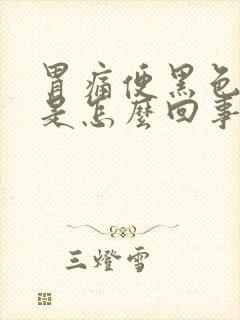 胃痛便黑色
是怎麼回事
三燈雪